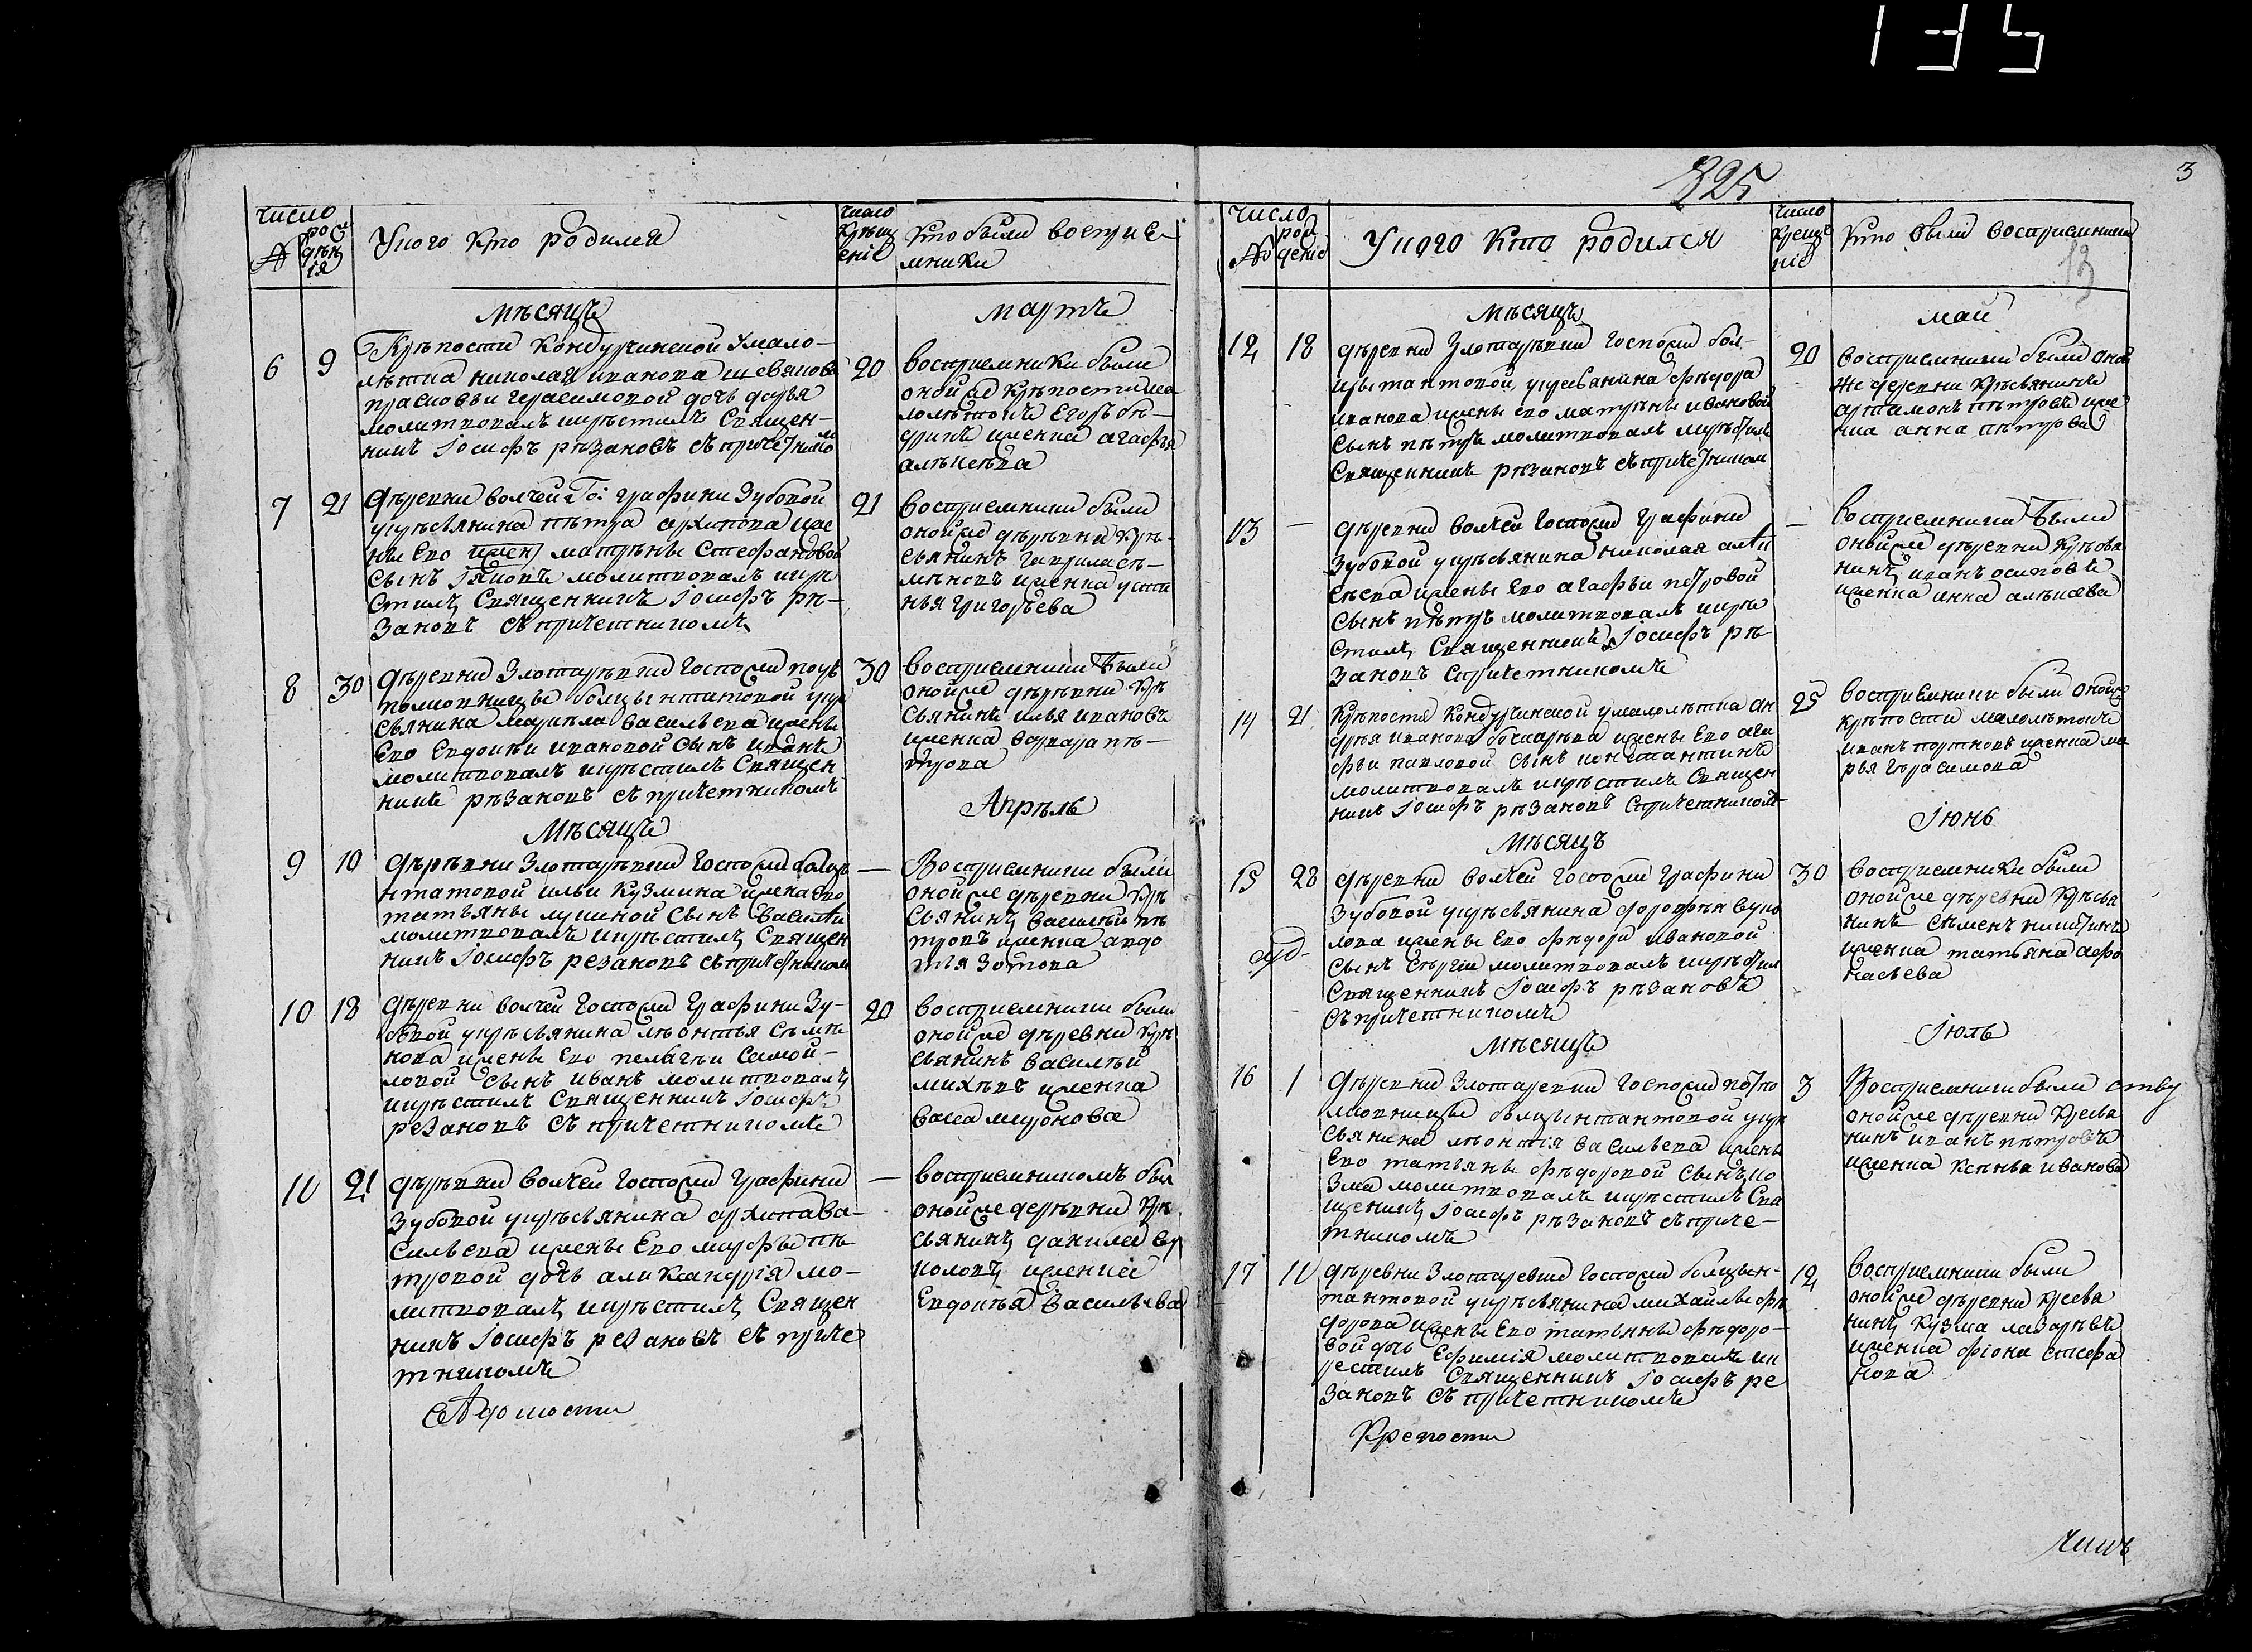 135
число
№
рождѣнія
Укого кто родилса
число крещеніе
Кто были востріе-
мники
мѣсяцъ
мартъ
6
9
Крѣпости Кондурчинской Умало-
лѣтка николая иванова
прасковьи герасимовой дочь дарья
молитвовалъ икрѣстилъ Священ-
никъ Іосифъ рѣзановъ съ причетником
20
Востриемники были
онойже крѣпости ма
лолѣтокъ Егоръ
женка агафья
алѣксѣва
7
21
дѣревни волчей Гос: графини Зубовой
укрѣсьянина пѣтра архипова же
ны Ево матрѣны Стефановой
Сынъ молитвовалъ икрѣ
стилъ Священникъ Іосифъ рѣ-
зановъ съ причетникомъ
21
востриемники были
онойже дѣревни крѣ-
сьянинъ гаврила сѣ-
мѣновъ женка усти
нья григорьева
8
30
дѣревни Златарѣвки Госпожи подъ
полковницы болцынтатовой укрѣ
сьянина василѣва жены
Ево Евдокѣи ивановой Сынъ иванъ
молитвовалъ икрѣстилъ Священ
никъ рѣзановъ съ причетникомъ
30
востриемники были
онойже дѣрѣвни крѣ
сьянинъ илья ивановъ
женка варвара пѣ-
трова
Мѣсяцъ
Апрѣль
9
10
дѣрѣвни Златарѣвки Госпожи
нтатовой ильи Кузмина жена Ево
татьяны лукиной Сынъ Василѣй
молитвовалъ икрѣстилъ Священ
никъ Іосифъ резановъ съ причетником
—
Востриемники были
онойже дѣревни крѣ
сьянинъ василѣй пѣ
тровъ женка авдо
тья Зотова
10
18
дѣревни волчей Госпожи Графини Зу-
бовой укрѣсьянина лѣонтья Сѣмѣ
нова жены Ево пелагѣи Самой-
ловой Сынъ иванъ молитвовалъ
икрѣстилъ Священникъ Іосифъ
резановъ съ причетникомъ
20
востриемники были
онойже дѣревни крѣ
сьянинъ василѣй
михѣевъ женка
васа миронова
11
21
дѣрѣвни волчей Госпожи Графини
Зубовой укрѣсьянина архипа ва-
сильева жены Ево марфы пѣ
тровой дочь александрія мо-
литвовалъ икрѣстилъ Священ
никъ Іосифъ резановъ съ приче
тникомъ
—
востриемникомъ был
онойже дерѣвни крѣ
сьянинъ данила
женка
Евдокья Васильева
325
3
13
число
№
рождение
Укого кто родился
число крещение
Кто были востриемники
мѣсяцъ
май
12
18
дѣревни Златарѣвки Госпожи бол-
цынтантовой укрѣсьянина фѣдора
иванова жены ево матрѣны ивановой
Сынъ пѣтръ молитвовалъ икрѣстилъ
Священникъ рѣзановъ съ причетником
20
востриемники были оной
же деревни крѣсьянинъ
артамонъ пѣтровъ же
нка анна пѣтрова
13
—
дѣревни волчей Госпожи Графини
Зубовой укрѣсьянина николая алѣк
сѣева жены Ево агафьи пѣтровой
Сынъ пѣтръ молитвовалъ икрѣ
стилъ Священникъ Іосифъ рѣ
зановъ спричетникомъ
—
востриемники были
онойже дѣревни крѣсья
нинъ иванъ осиповъ
женка анна алѣксева
14
21
Крѣпости Кондурчинской умалолѣтка ан
дрѣя иванова жены Ево ага
фьи павловой Сынъ константинъ
молитвовалъ икрѣстилъ Священ
никъ Іосифъ рѣзановъ спричетником
25
востриемники были онойже
крѣпости малолѣтокъ
иванъ портновъ женка ма
рья гѣрасимова
Мѣсяцъ
Іюнь
15
28
дѣревни волчей Госпожи Графини
Зубовой укрѣсьянина дорофѣя
лова жены Ево фѣдоры ивановой
Сынъ сѣргѣй молитвовалъ икрѣстил
Священникъ Іосифъ рѣзановъ
съ причетникомъ
30
востриемники были
онойже дѣревни крѣсья
нинъ Сѣменъ никитинъ
женка татьяна афо
насьева
Мѣсяцъ
Іюль
16
1
дѣревни Златаревки Госпожи подпо
лковницы болцынтантовой укрѣ
сьянина лѣонтія василѣва жены
Ево татьяны фѣдоровой Сынъ ко
зма молитвовалъ икрѣстилъ Свя
щеникъ Іосифъ рѣзановъ съ приче-
тникомъ
3
Востриемники были
онойже дѣревни кресья
нинъ иванъ пѣтровъ
женка ксѣнья иванова
17
11
дѣревни Златаревки Госпожи болцын-
тантовой укрѣсьянина михайлы фѣ
дорова жены Ево татьяны фѣдоро-
вой дочь Ефимія молитвовалъ ик
рестилъ Священникъ Іосифъ ре
зановъ съ причетникомъ
12
востриемники были
онойже дѣревни кресья
нинъ кузма лазарѣвъ
женка фіона стефа
нова
Крепости